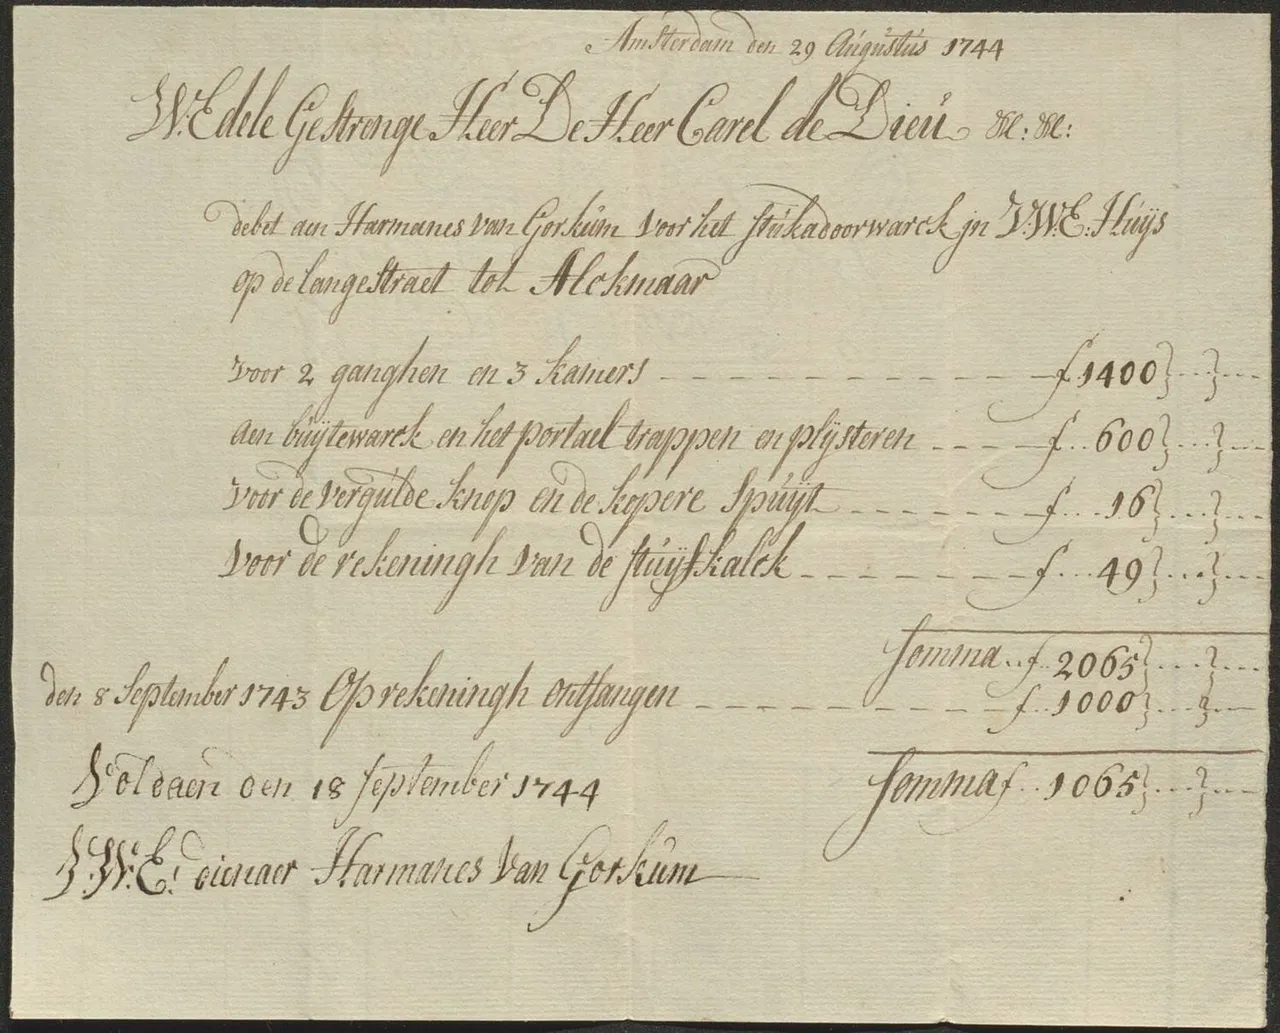 Amsterdam den 29 Augustus 1744
W. Edele Gestrenge Heer De Heer Carel de Dieu &c: &c:
debet aen Harmanes van Gorkum voor het stukadoorwarck jn V:W:E: Huijs
op de langestraet tot Alckmaar
voor 2 ganghen en 3 kamers f 1400
aen buijtewarck en het portael trappen en plijsteren f 600
voor de vergulde knop en de kopere Spuijt f 16
voor de rekeningh van de stuijfkalck f 49
somma f 2065
den 8 September 1743 Op rekeningh ontfangen f 1000
Voldaen den 18 september 1744 somma f 1065
V:W:E: dienaer Harmanes Van Gorkum